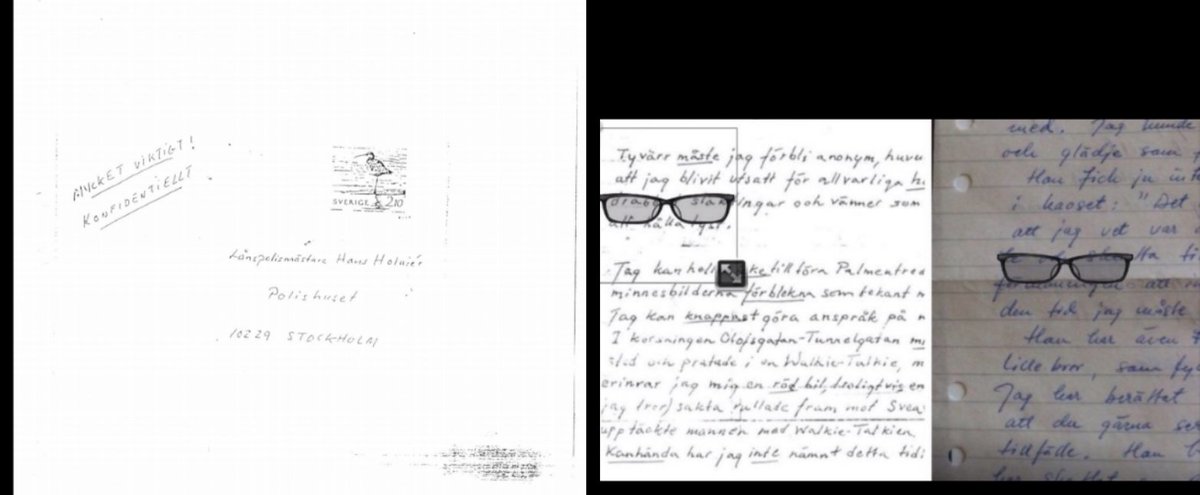 MYCKET VIKTIGT!
KONFIDENTIELLT
SVERIGE 210
Länspolismästare Hans Holmér
Polishuset
10229 STOCKHOLM
Tyvärr måste jag förbli anonym, huvu
att jag blivit utsatt för allvarliga
ningar och vänner som
Jag kan till föra Palmeutred
minnesbilderna förblekna som bekant
Jag kan knappast göra anspråk på
I korsningen Olofsgatan-Tunnelgatan
stod och pratade i en Walkie-Talkie, m
erinrar jag mig en röd bil, troligtvis en
jag tror) sakta rullade fram mot Svea
upptäckte mannen med Walkie-Talkien.
Kanhända har jag inte nämnt detta tidi
med. Jag kunde
och glädje som
Han fick ju
i kaoset: "Det
att jag vet var
att
den tid jag måste
Han har även
lille bror, som
Jag har berättat
att du gärna
tillfälle. Han
har